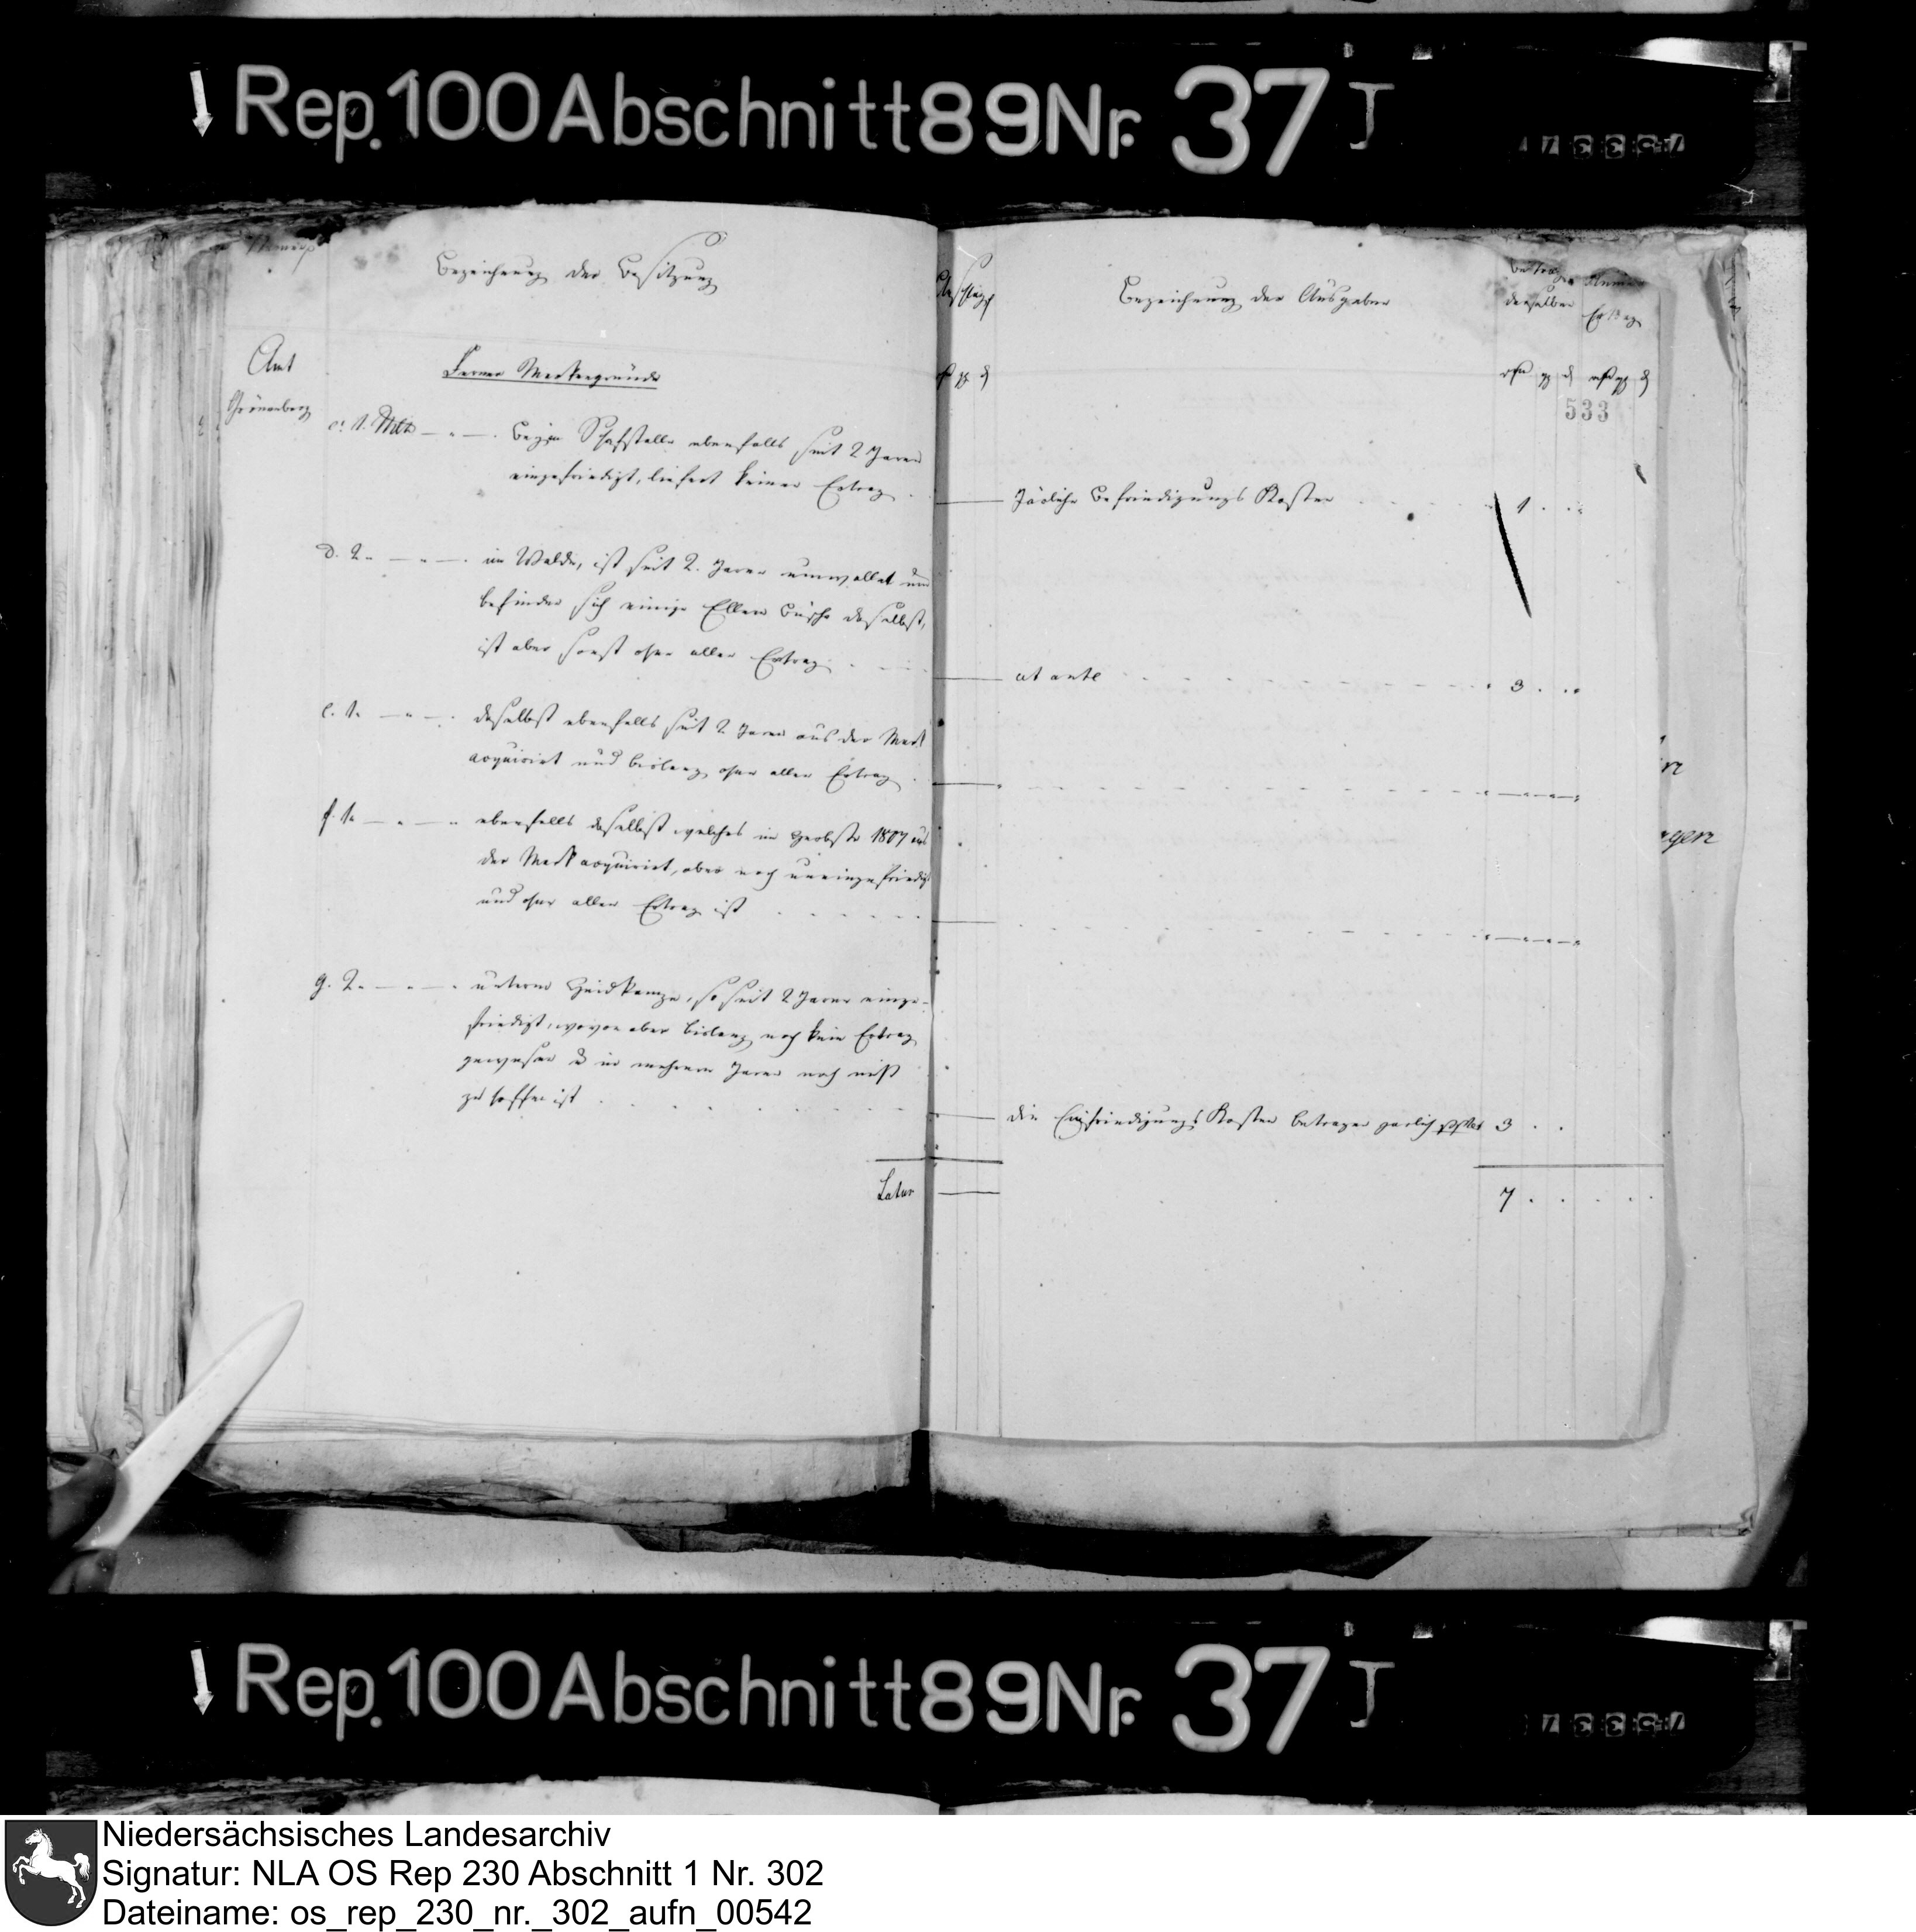 Rep. 100 Abschnitt 89 Nr. 37 I
Bezeichnung der Besitzung
Amt
Grönenberg
Ferner Markengründe
c. 1. Mltr — " — . beym Schafstalle ebenfalls seit 2 Jaren
eingefriedigt, liefert keinen Ertrag .
d. 2. " — " — . im Walde, ist seit 2. Jaren umwallet und
befinden sich einige Ellern Büsche daselbst,
ist aber sonst ohne allen Ertrag . . .
e. 1. — " — . daselbst ebenfalls seit 2 Jaren aus der Mark
acquirirt und bislang ohne allen Ertrag .
f. 1. — " — " ebenfalls daselbst welches im Herbste 1807 aus
der Mark acquirirt, aber noch uneingefriedigt
und ohne allen Ertrag ist . . . . . .
g. 2. — " — . unterm Heidkampe, so seit 2 Jaren einge-
friedigt, wovon aber bislang noch kein Ertrag
gewesen & in mehrern Jaren noch nicht
zu hoffen ist . . . . . . . .
Latus
Anschlag
Bezeichnung der Ausgaben
Betrag
derselben
Ertrag
533
Järliche Befriedigungs Kosten . . . . 1 . . .
ut ante . . . . . . . . 3 . . .
die Einfriedigungs Kosten betragen jarlich 3 . .
7 . . . . .
gen
Rep. 100 Abschnitt 89 Nr. 37 I
Niedersächsisches Landesarchiv
Signatur: NLA OS Rep 230 Abschnitt 1 Nr. 302
Dateiname: os_rep_230_nr._302_aufn_00542